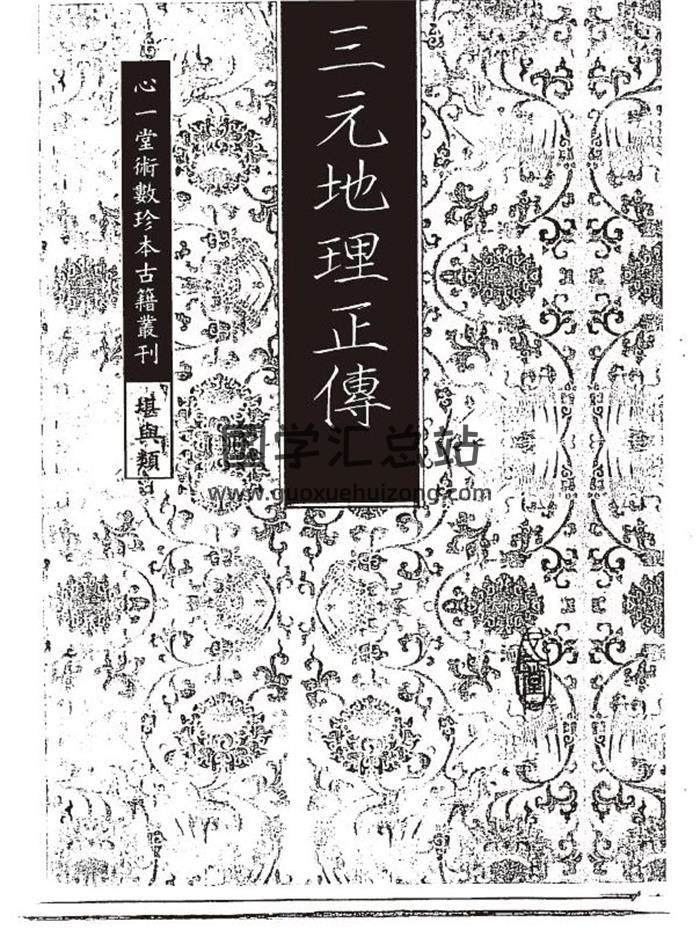 三元地理正傳
心一堂術數珍本古籍叢刊
堪輿類
国学汇总站
www.guoxuehuizong.com